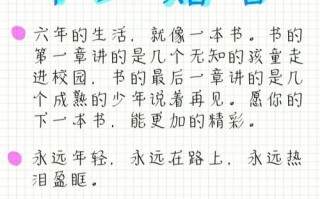 六年的生活，就像一本书。书的
第一章讲的是几个无知的孩童走
进校园，书的最后一章讲的是几
个成熟的少年说着再见。愿你的
下一本书，能更加的精彩。
永远年轻，永远在路上，永远热
泪盈眶。